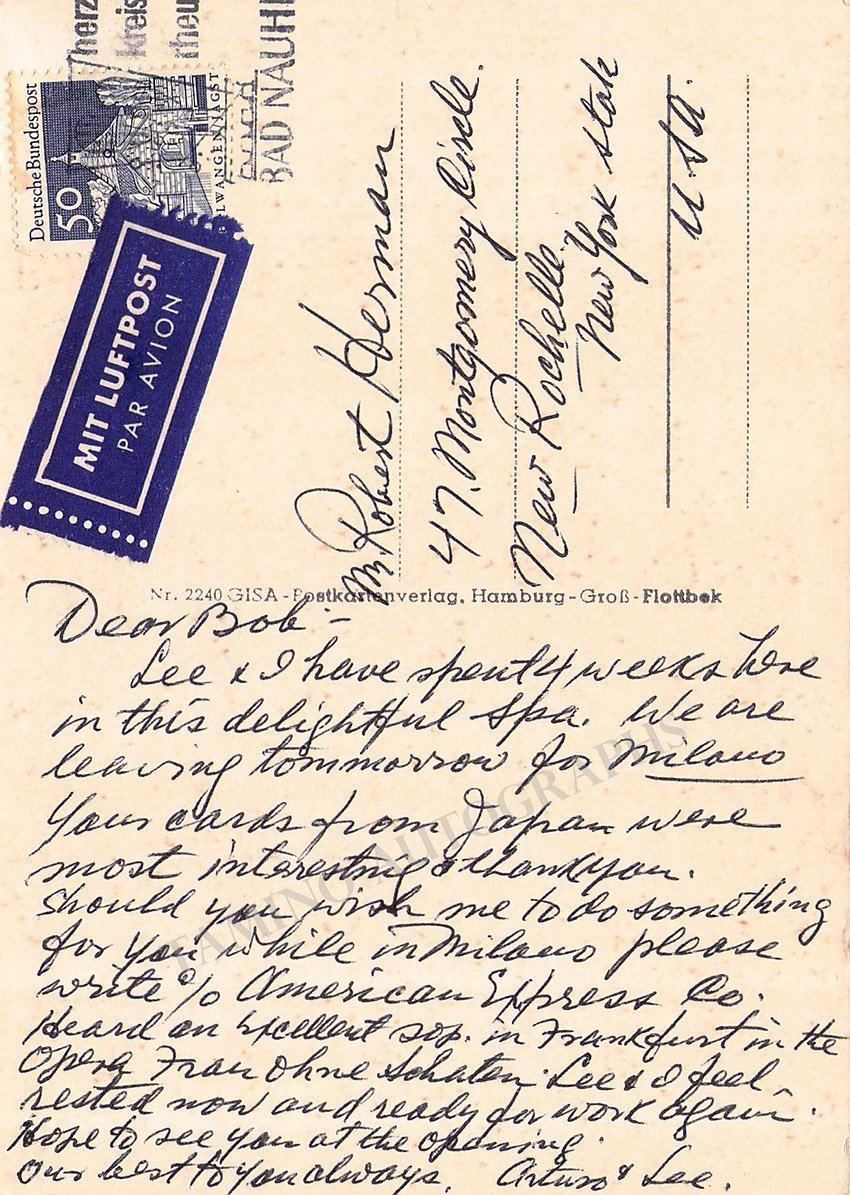 herz
kreis
rheu
BAD NAUHE
Deutsche Bundespost
50
LWANGEN/JAGST
MIT LUFTPOST
PAR AVION
Mr Robert Herman
47. Montgomery Circle.
New Rochelle.
New York State
U.S.A.
Nr. 2240 GISA-Postkartenverlag, Hamburg-Groß-Flottbek
Dear Bob:-
Lee & I have spent 4 weeks here
in this delightful Spa. We are
leaving tommorrow for Milano
Your cards from Japan were
most interesting & thank you.
Should you wish me to do something
for you while in Milano please
write c/o American Express Co.
Heard an excellent sop. in Frankfurt in the
opera Frau Ohne Schaten. Lee & I feel
rested now and ready for work again.
Hope to see you at the opening.
Our best to you always. Arturo & Lee.
TAMINO AUTOGRAPHS